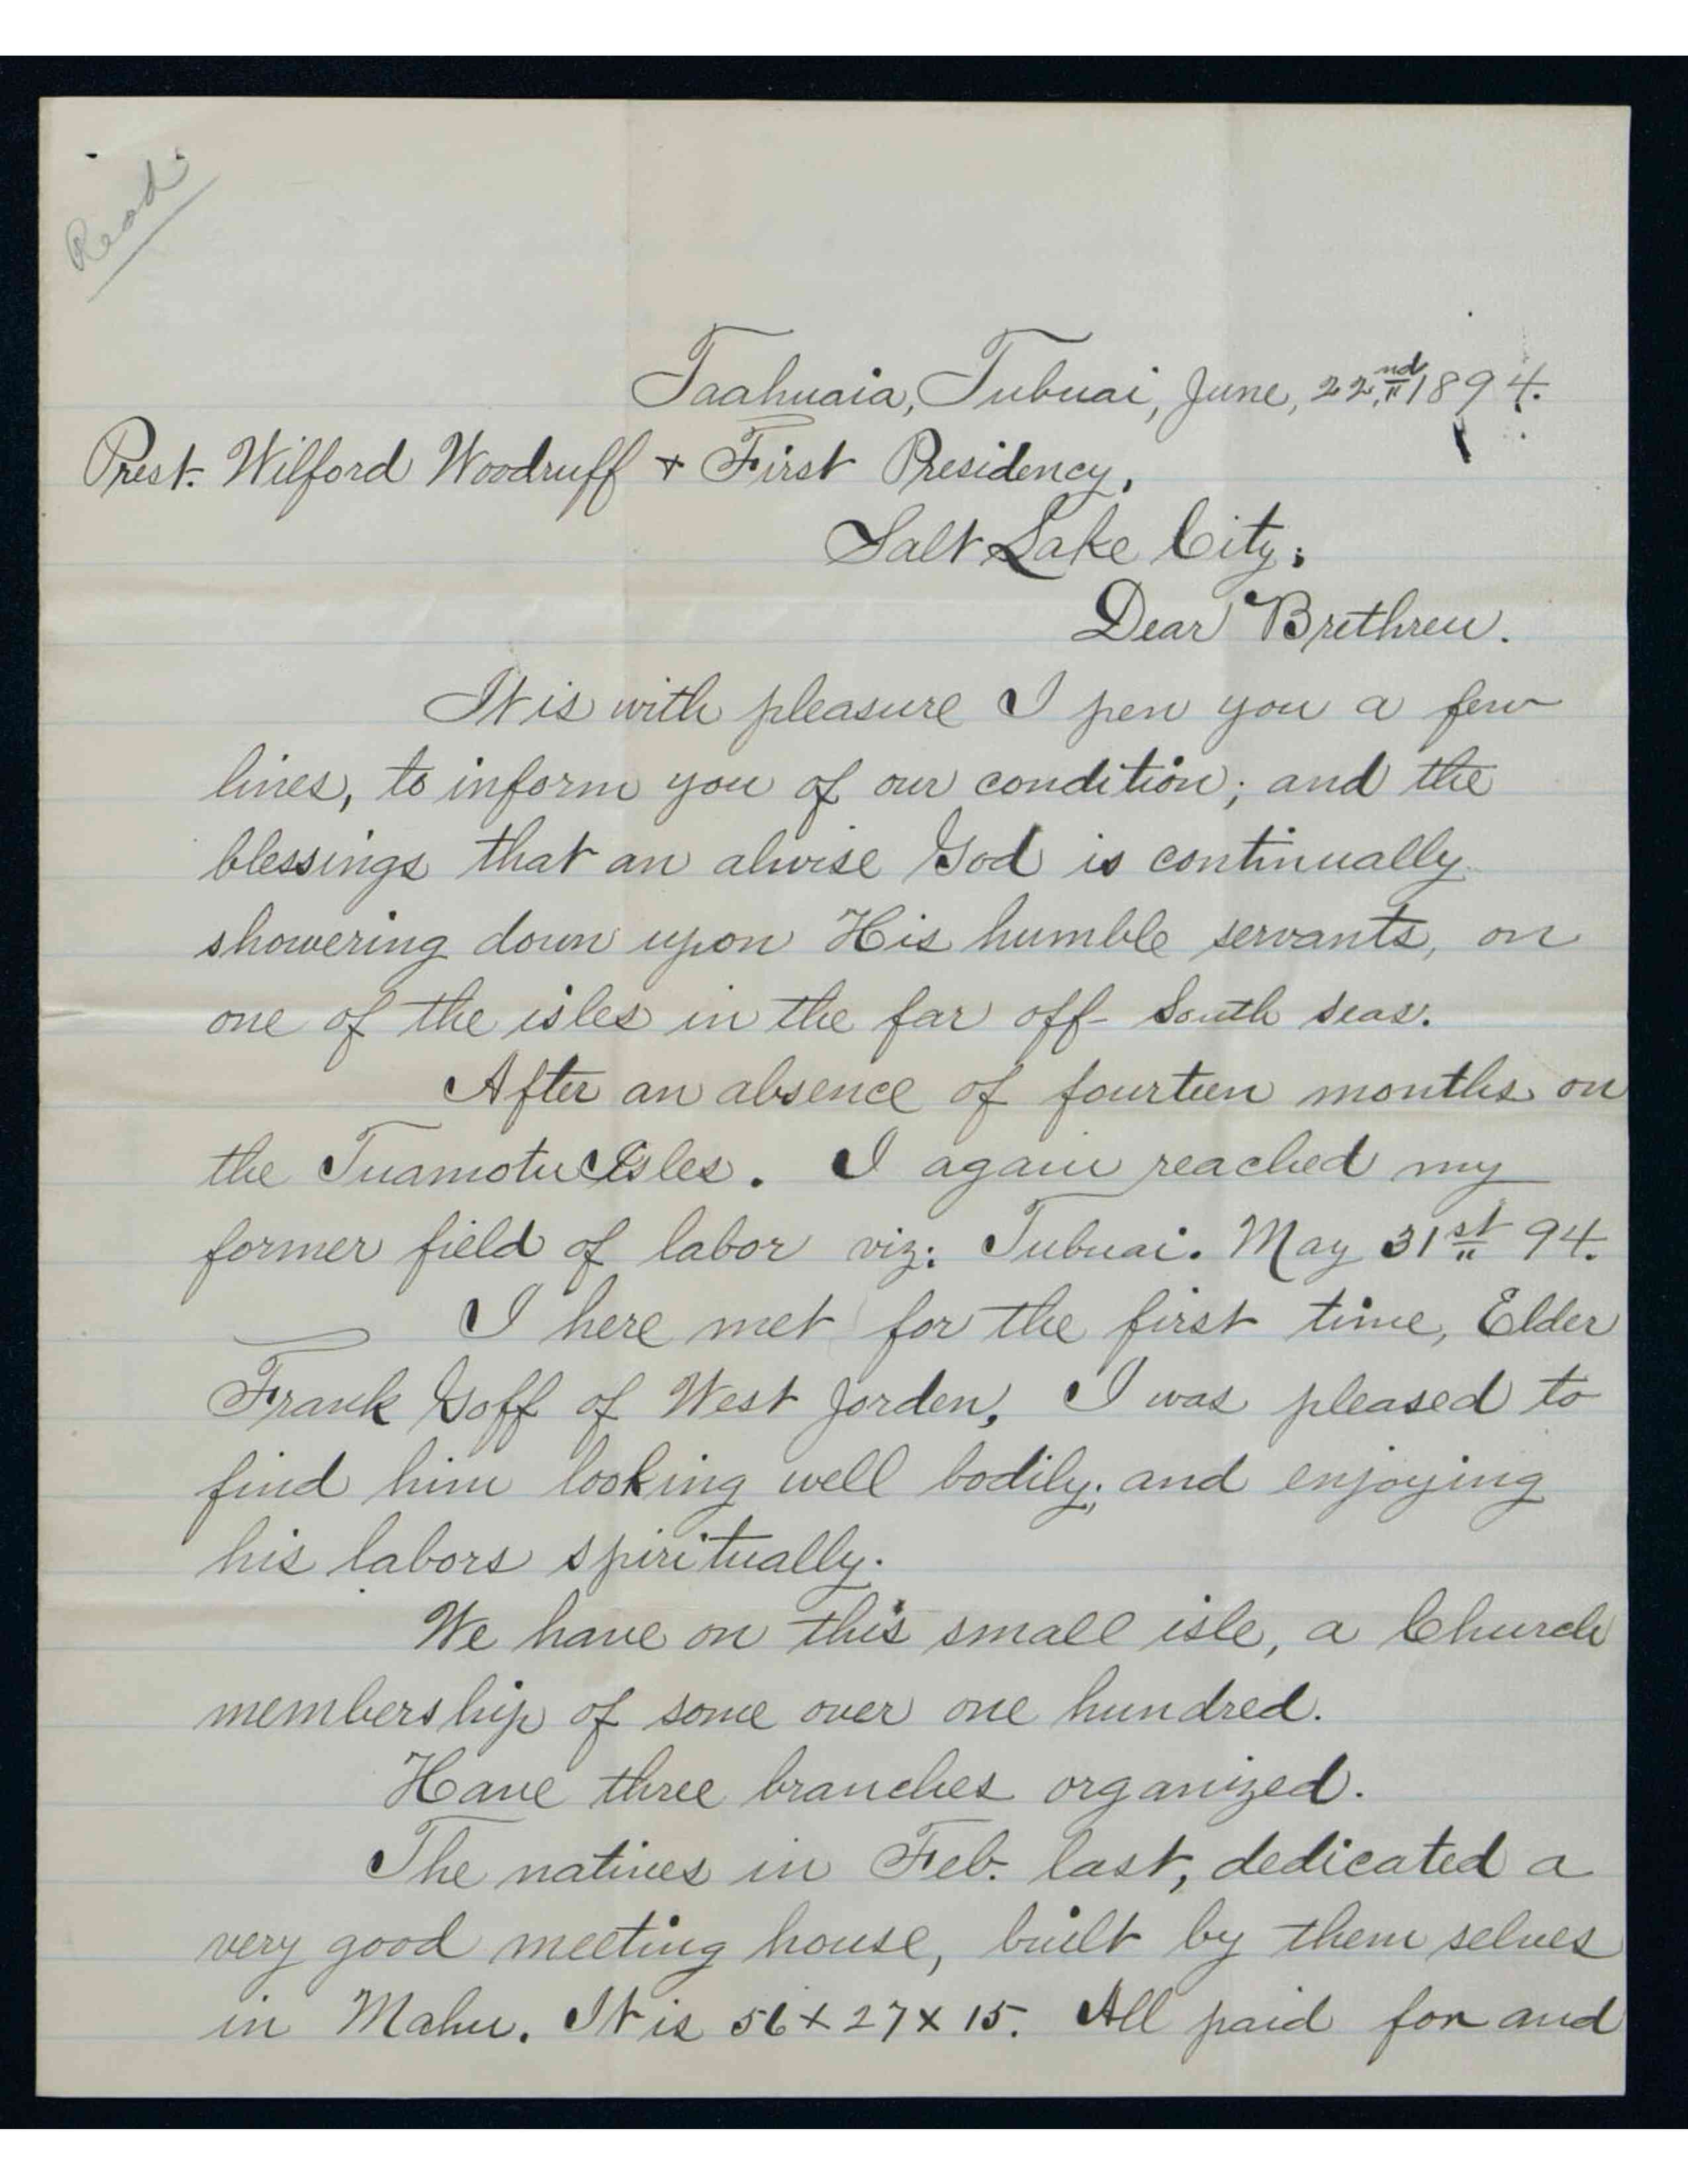 Read
Taahuaia, Tubuai, June, 22nd, 1894.
Prest. Wilford Woodruff + First Presidency,
Salt Lake City;
Dear Brethren.
It is with pleasure I pen you a few
lines, to inform you of our condition; and the
blessings that an alwise God is continually
showering down upon His humble servants, on
one of the isles in the far off South seas.
After an absence of fourteen months on
the Tuamotu Isles. I again reached my
former field of labor viz: Tubuai. May 31st 94.
I here met for the first time, Elder
Frank Goff of West Jorden, I was pleased to
find him looking well bodily; and enjoying
his labors spiritually.
We have on this small isle, a Church
membership of some over one hundred.
Have three branches organized.
The natives in Feb. last, dedicated a
very good meeting house, built by them selves
in Mahu. It is 56 x 27 x 15. All paid for and